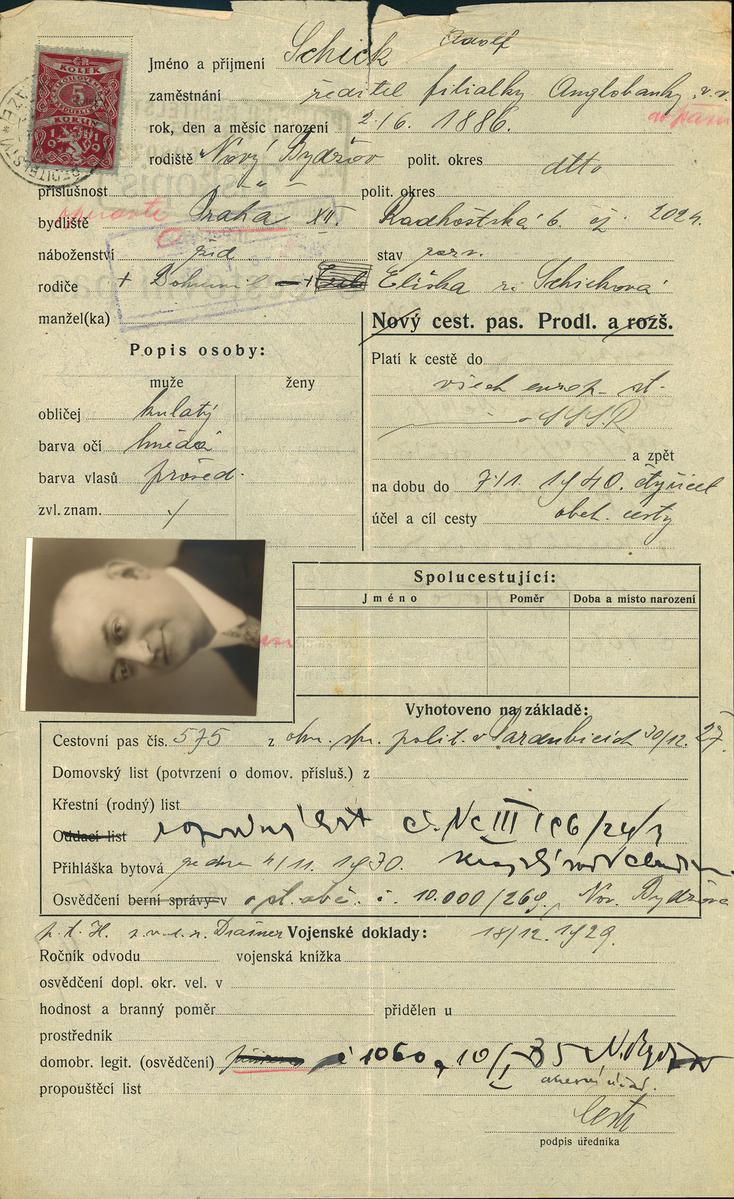 ČR
KOLEK
5
KORUN
1919
Jméno a příjmení Schick Adolf
zaměstnání ředitel filialky Anglobanky v. v.
rok, den a měsíc narození 2./6. 1886.
rodiště Nový Bydžov polit. okres dtto
příslušnost „ „ polit. okres
bydliště Praha XII. Radhoštská 6. čj. 2024.
náboženství žid. stav rozv.
rodiče + Bohumil — + Eliška r. Schicková
manžel(ka)
Nový cest. pas. Prodl. a rozš.
Popis osoby:
muže ženy
Platí k cestě do
všech europ. st.
SSSR
obličej kulatý
barva očí hnědá
a zpět
barva vlasů prošed.
na dobu do 7/1. 1940. čtyřicet
zvl. znam.
účel a cíl cesty obch. cesty
Spolucestující:
Jméno Poměr Doba a místo narození
Vyhotoveno na základě:
Cestovní pas čís. 575 z okr. spr. polit. v Pardubicích 30/12. 27.
Domovský list (potvrzení o domov. přísluš.) z
Křestní (rodný) list
Oddací list rozvodný list č. Nc III 166/24/3
Přihláška bytová ze dne 4/11. 1930.
Osvědčení berní správy v opl. obč. č. 10.000/269, Nov. Bydžova
18/12. 1929.
Vojenské doklady:
Ročník odvodu vojenská knížka
osvědčení dopl. okr. vel. v
hodnost a branný poměr přidělen u
prostředník
domobr. legit. (osvědčení) č 1060, 10/I 35 N. Bydžov
okresní úřad.
propouštěcí list
podpis úředníka